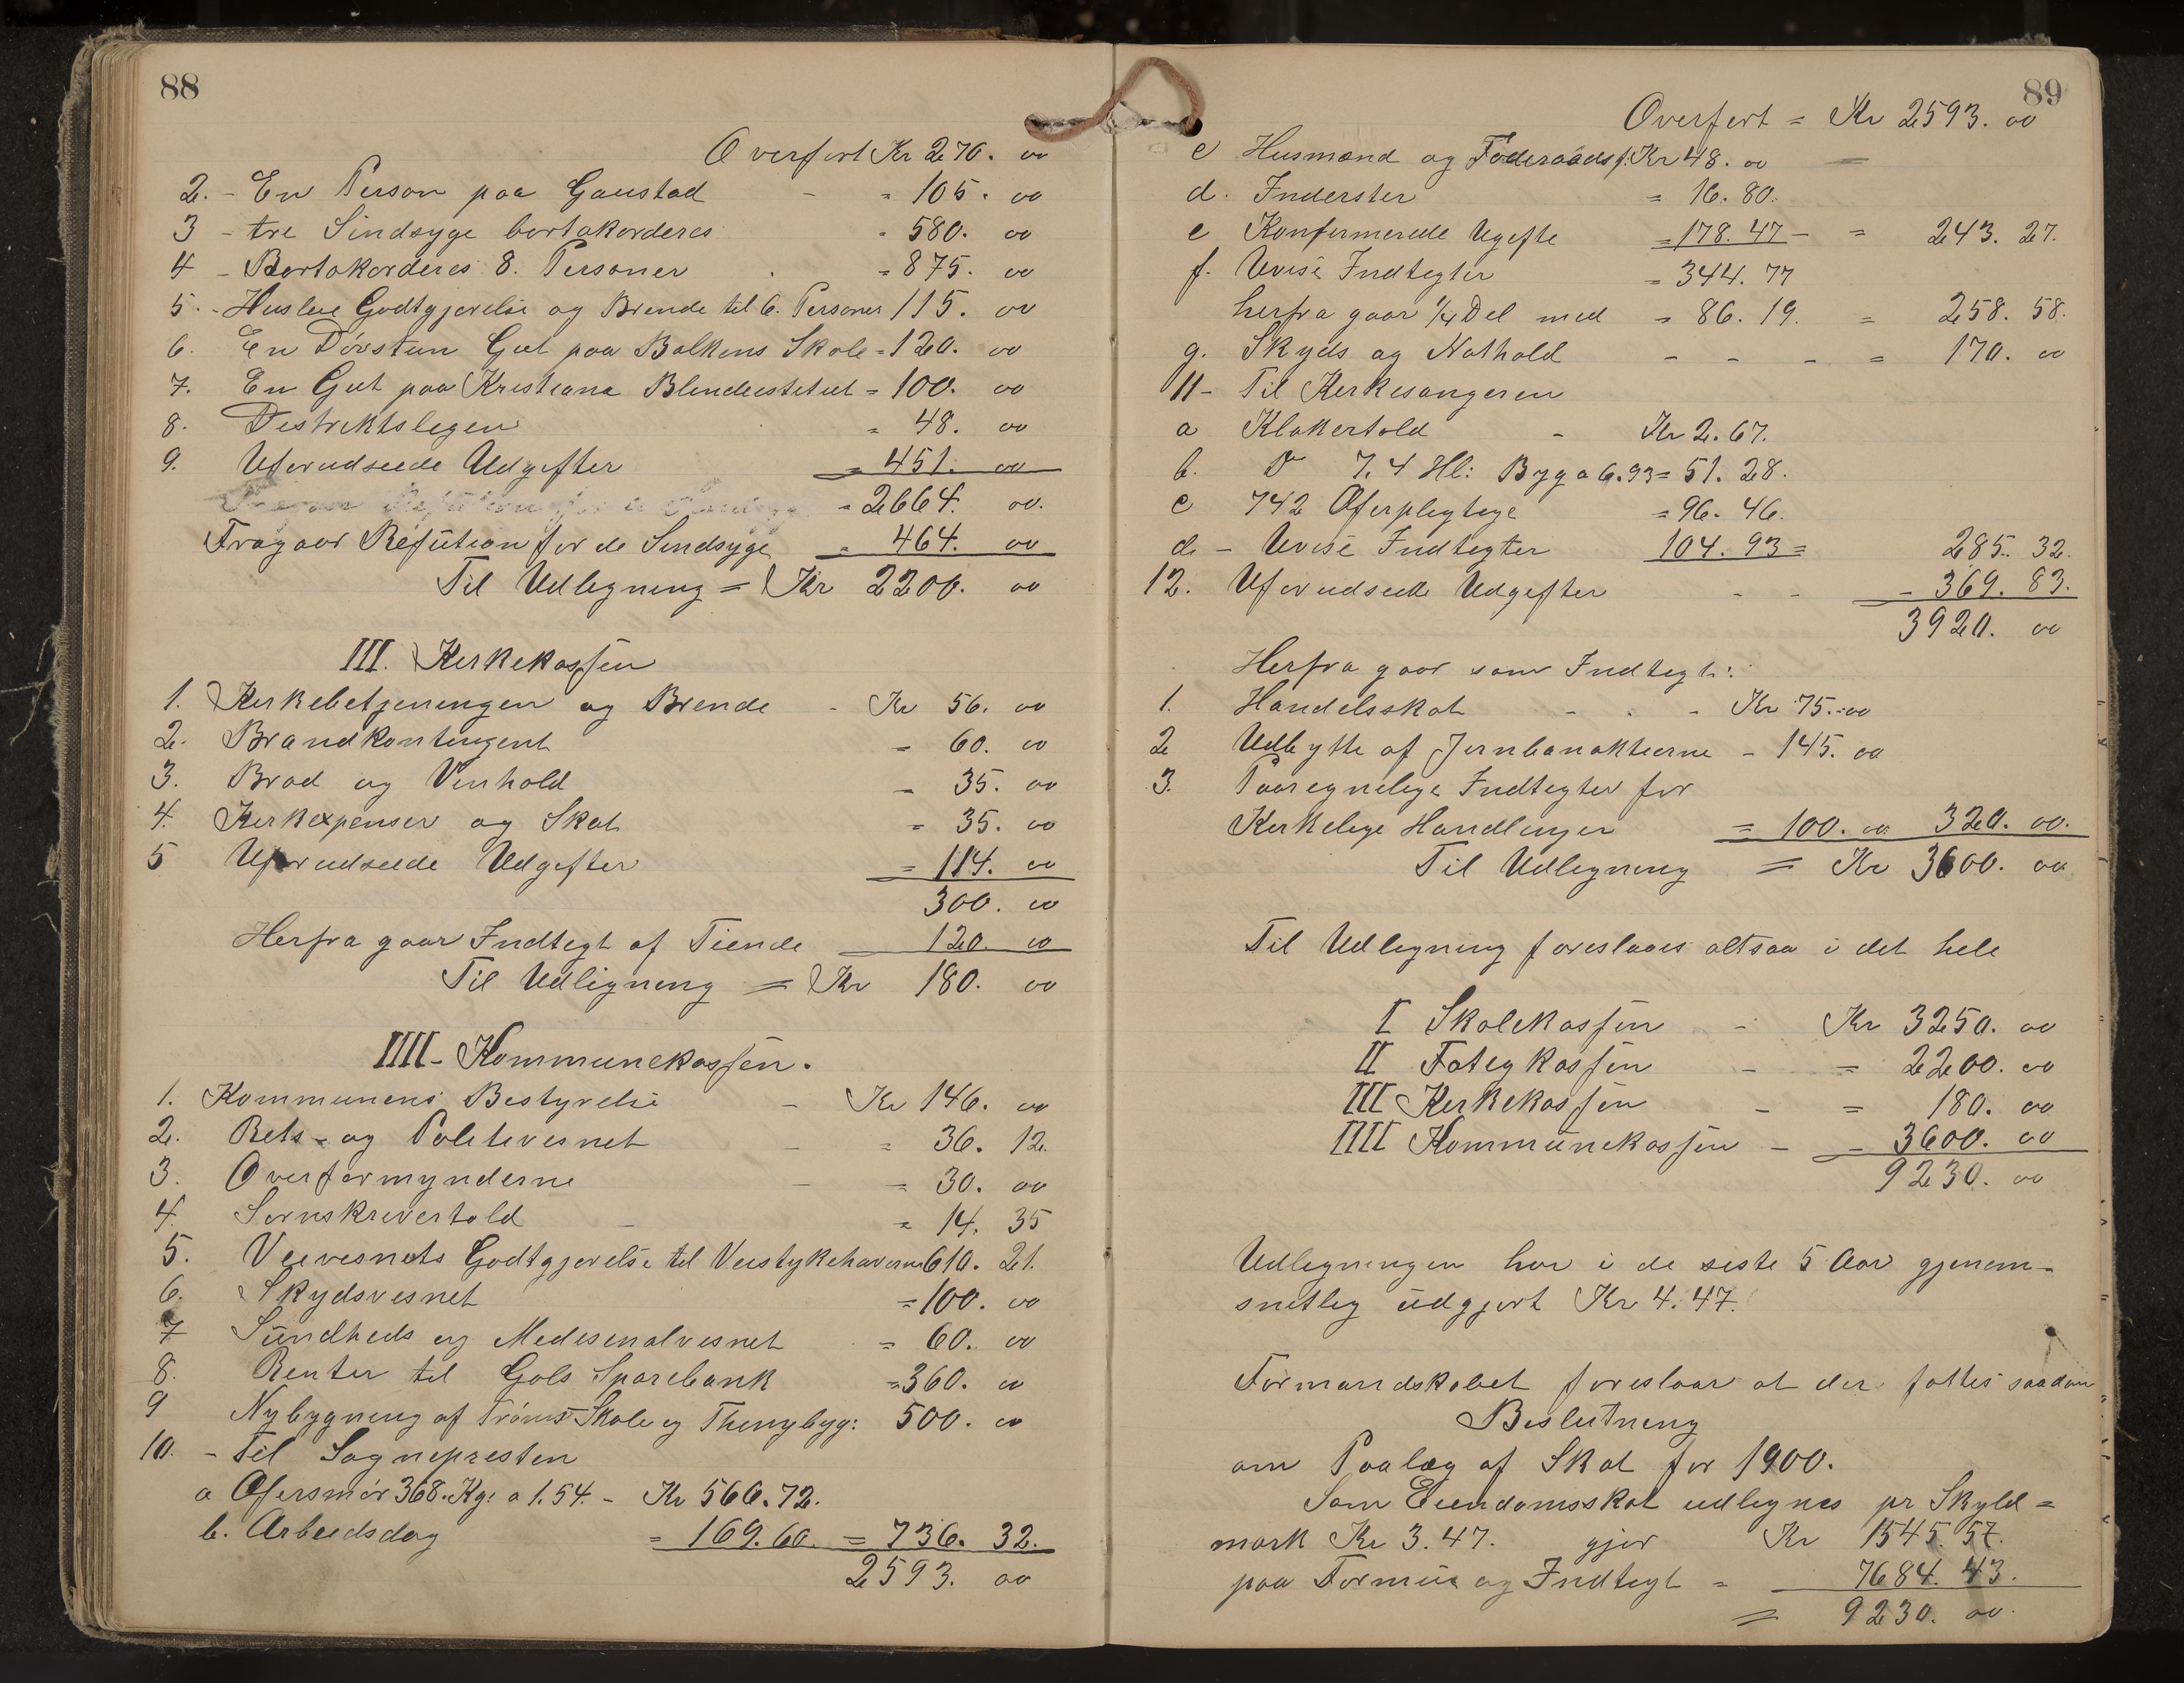 88
Overført Kr 270. 00
2. - En Person paa Gaustad - = 105. 00
3 - tre Sindsyge bortakorderes = 580. 00
4 - Bortakorderes 8. Personer . = 875. 00
5. - Husleie Godtgjørelse og Brende til 6. Personer 115. 00
6. En Døvstum Gut paa Balkens Skole = 120. 00
7. En Gut paa Kristiana Blindeistitut = 100. 00
8. Destriktslegen = 48. 00
9. Uforudseede Udgifter = 451. 00
= 2664. 00.
Fragaar Refution for de Sindsyge = 464. 00
Til Udlegning = Kr 2200. 00
III. Kerkekassen
1. Kerkebetjeningen og Brende - Kr 56. 00
2. Brandkontingent = 60. 00
3. Brød og Vinhold = 35. 00
4. Kerkexpenser og Skat = 35. 00
5 Uforudseede Udgifter = 114. 00
300. 00
Herfra gaar Indtegt af Tiende 120. 00
Til Udligning = Kr 180. 00
IIII - Kommunekassen.
1. Kommunens Bestyrelse - Kr 146. 00
2. Rets- og Politivesnet - = 36. 12.
3. Overformynderne - = 30. 00
4. Sornskrivertold - = 14. 35
5. Veivesnets Godtgjørelse til Veistykehaverne 610. 21.
6. Skydsvesnet = 100. 00
7 Sundheds og Medisinalvesnet = 60. 00
8. Renter til Gols Sparebank = 360. 00
9 Nybygning af Trøims Skole og Thinybygg: 500. 00
10. - Til Sognepresten
a Ofersmør 368. Kg. a 1.54. - Kr 566.72.
b. Arbeidsdag = 169.60. = 736. 32.
2593. 00
89
Overført = Kr 2593. 00
c Husmænd og Føderaadsf. Kr 48. 00 =
d. Inderster = 16. 80.
e Konfirmerede Ugifte = 178. 47 - = 243. 27.
f. Uvise Indtegter = 344. 77
herfra gaar 1/4 Del med = 86. 19. = 258. 58.
g. Skyds og Nathold - - - = 170. 00
11 - Til Kerkesangeren
a Klokertold - Kr 2. 67.
b. Do 7.4 Hl: Byg a 6.93 = 51. 28.
c 742 Oferpligtige = 96. 46.
d - Uvise Indtegter 104. 93 = 285. 32.
12. Uforudseede Udgifter - - - 369. 83.
3920. 00
Herfra gaar som Indtegt:
1. Handelsskat - . - Kr 75. 00
2 Udbytte af Jernbanaktierne - 145. 00
3. Paaregnelige Indtegter for
Kerkelige Handlinger = 100. 00 320. 00.
Til Udlegning = Kr 3600. 00
Til Udlegning foreslaaes altsaa i det hele
I Skolekassen - Kr 3250. 00
II Fatigkassen - = 2200. 00
III Kerkekassen - = 180. 00
IIII Kommunekassen - = 3600. 00
9230. 00
Udlegningen har i de siste 5 Aar gjenem-
snitlig udgjort Kr 4. 47.
Formandskabet foreslaar at der fattes saadan
Beslutning
om Paalæg af Skat for 1900.
Som Eiendomsskat udlignes pr Skyld =
mark Kr 3.47. gjør Kr 1545. 57.
paa Formue og Indtegt = 7684. 43.
= 9230. 00